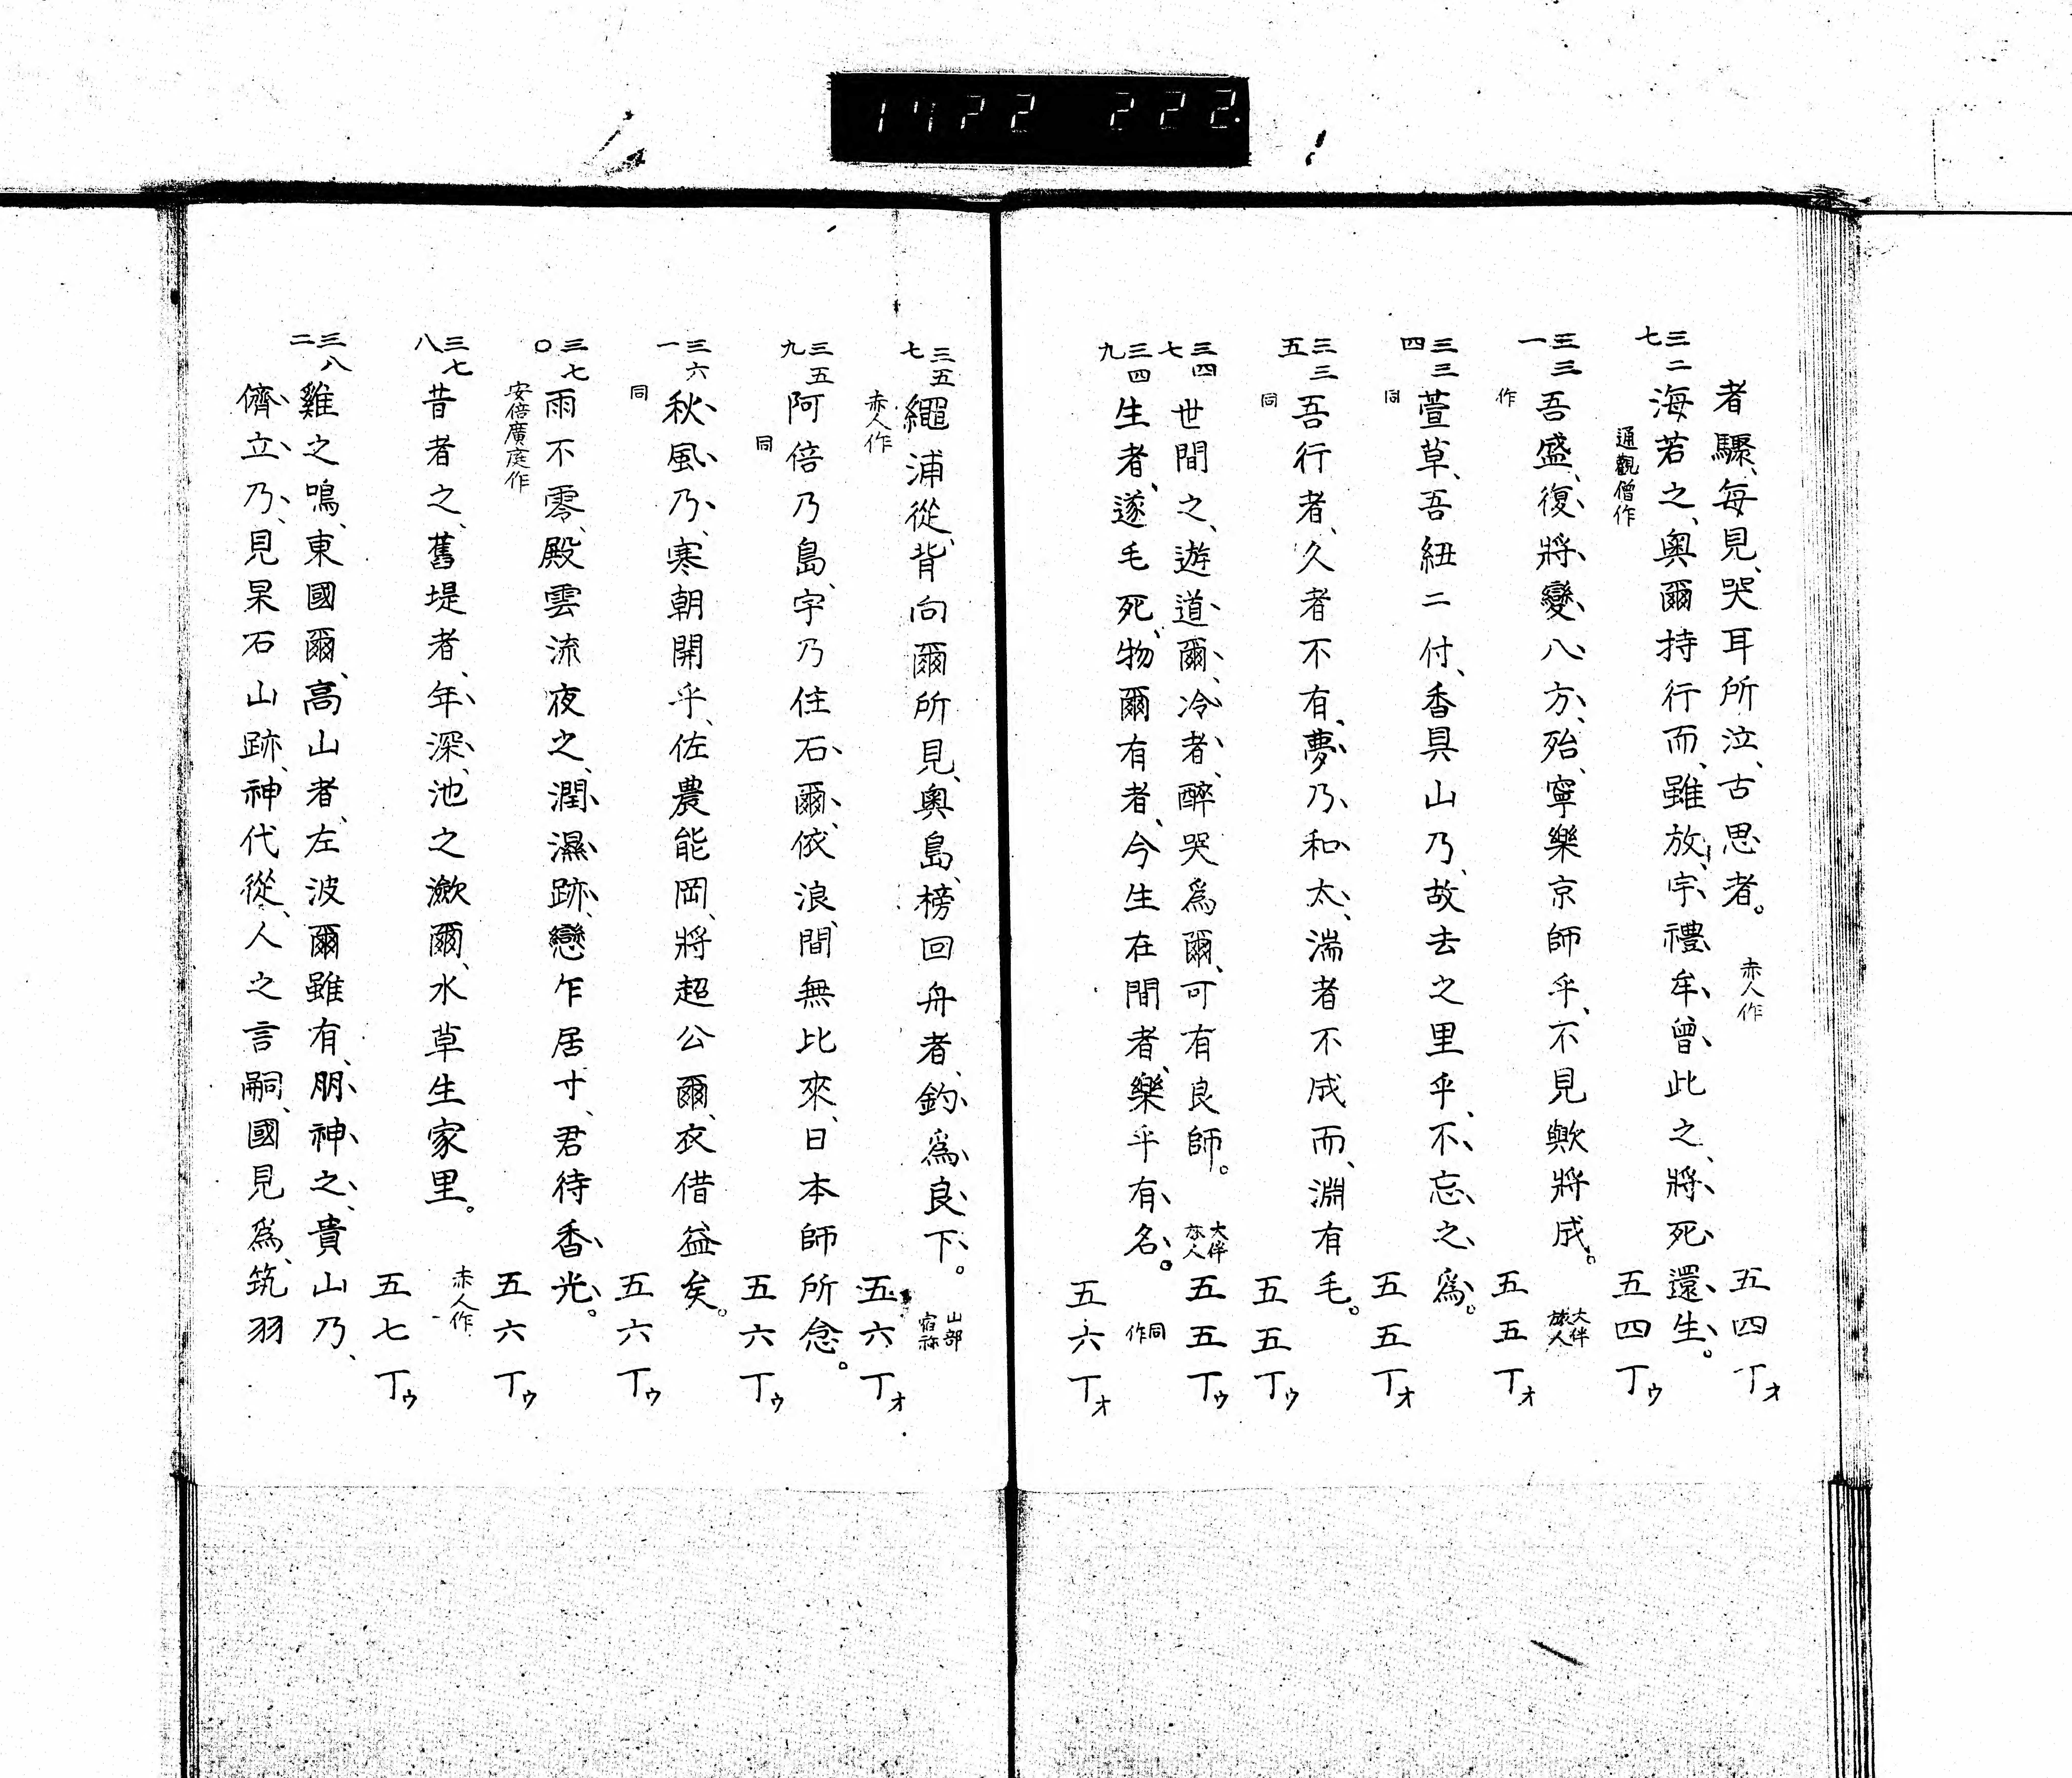 1722 222.
者驟、每見、哭耳所泣、古思者。 赤人作 五四丁オ
三二七 海若之、奥爾持行而、雖放、宇禮牟、曾、此之、將、死、還、生、。
通觀僧作 五四丁ウ
三三一 吾盛、復、將、變、八、方、殆、寧樂京師乎、不見歟將成。 大伴旅人
作 五五丁オ
三三四 萱草、吾紐二付、香具山乃、故去之里乎、不、忘、之、爲。
同 五五丁オ
三三五 吾行者、久者不有、夢、乃、和、太、湍者不成而、淵有毛。
同 五五丁ウ
三四七 世間之、遊道、爾、冷、者、醉哭爲爾、可有良師。 大伴旅人 五五丁ウ
三四九 生者、遂毛死、物爾有者、今生在間者、樂乎有、名、。 同作
五六丁オ
三五七 繩浦從、背向爾所見、奥島、榜回舟者、釣、爲、良、下、。 山部宿祢
赤人作 五六丁オ
三五九 阿倍乃島、宇乃住石、爾、依浪、間無比來、日本師所念。
同 五六丁ウ
三六一 秋、風、乃、寒朝開乎、佐農能岡、將超公爾、衣借益矣。
同 五六丁ウ
三七〇 雨不零、殿雲流夜之、潤、濕、跡、戀乍居寸、君待香、光、。
安倍廣庭作 五六丁ウ
三七八 昔者之、舊堤者、年、深、池之瀲爾、水草生家里。 赤人作
五七丁ウ
三八二 雞之鳴、東國爾、高山者、左波爾雖有、朋、神、之、貴山乃、
儕、立、乃、見杲石山跡、神代從、人之言嗣、國見爲、筑羽